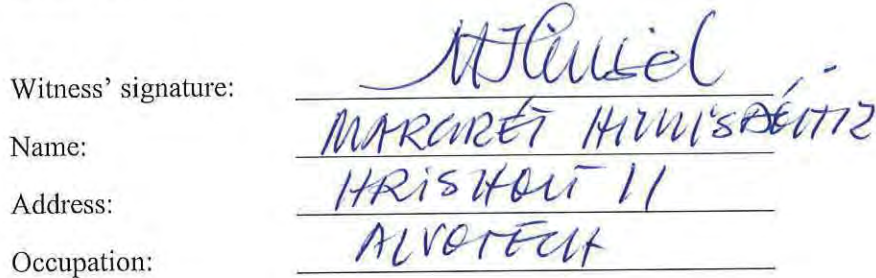 Witness' signature:
Name: MARGRÉT
Address: HRISHOLT 11
Occupation: ALVOTECH